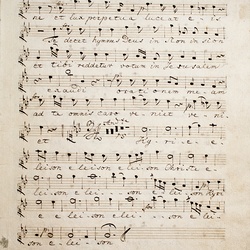 na et lux perpetua luceat e - is
Te decet hymnus Deus in sion in sion
et tibi reddetur votum in Jerusalem
exaudi orationem meam
ad te omnis caro veniet veni-
et Ky - ri - e - e -
leison e leison e leison Christe e -
leison e lei - son e lei - son Kyri
e e lei - son e lei - - - son e lei -
son e lei - son